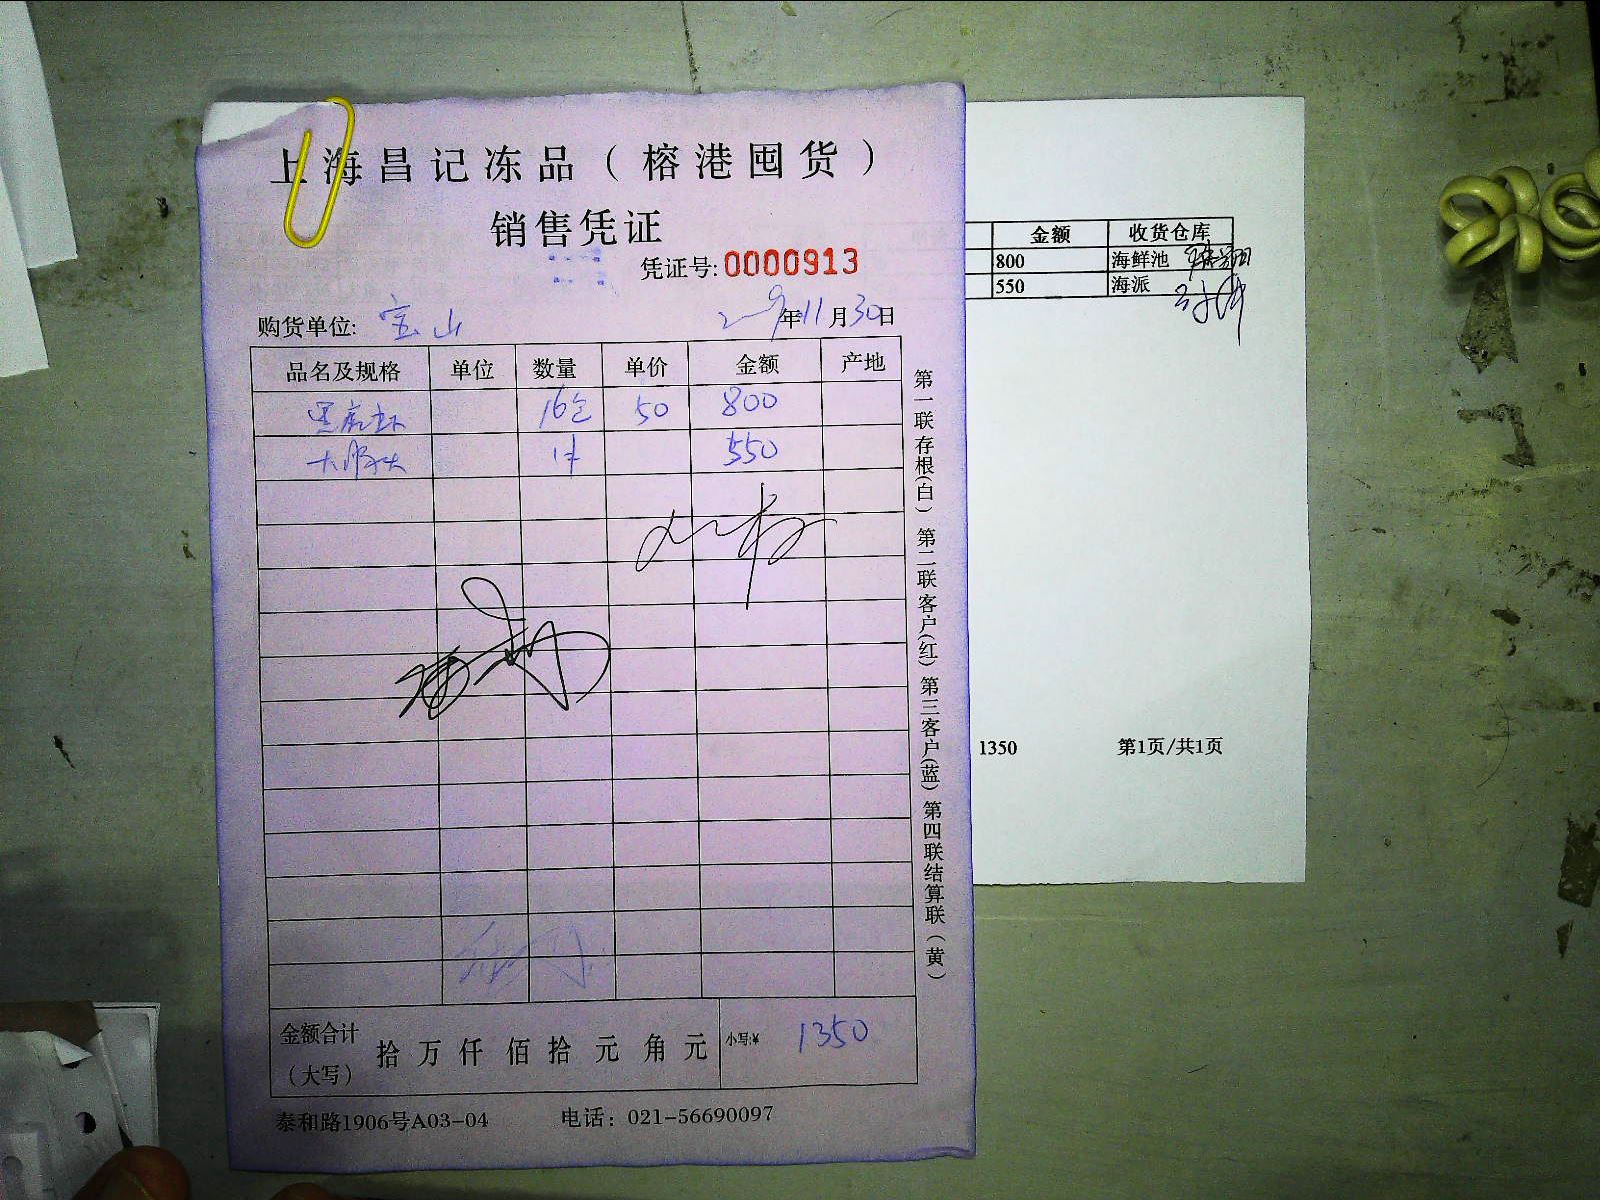 上海昌记冻品（榕港囤货）
销售凭证
凭证号:0000913
购货单位: 宝山 年11月30日
品名及规格 单位 数量 单价 金额 产地
黑虎虾 16包 50 800
550
金额合计（大写） 拾 万 仟 佰 拾 元 角 元 小写:¥ 1350
泰和路1906号A03-04 电话：021-56690097
第一联存根(白) 第二联客户(红) 第三客户(蓝) 第四联结算联(黄)
金额 收货仓库
800 海鲜池
550 海派
1350 第1页/共1页